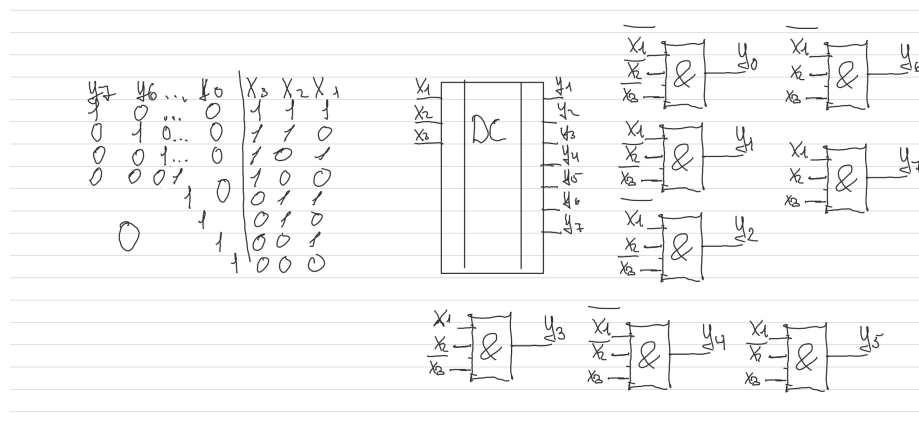 y7 y6... y0 | X3 X2 X1
1 0 ... 0 | 1 1 1
0 1 0... 0 | 1 1 0
0 0 1... 0 | 1 0 1
0 0 0 1 | 1 0 0
1 0 | 0 1 1
1 | 0 1 0
0 1 | 0 0 1
1 | 0 0 0
X1
X2
X3
DC
y1
y2
y3
y4
y5
y6
y7
X̅1̅ X̅2̅ X̅3̅ & y0
X1 X̅2̅ X̅3̅ & y1
X̅1̅ X2 X̅3̅ & y2
X̅1̅ X2 X3 & y6
X1 X2 X3 & y7
X1 X2 X̅3̅ & y3
X̅1̅ X̅2̅ X3 & y4
X1 X̅2̅ X3 & y5